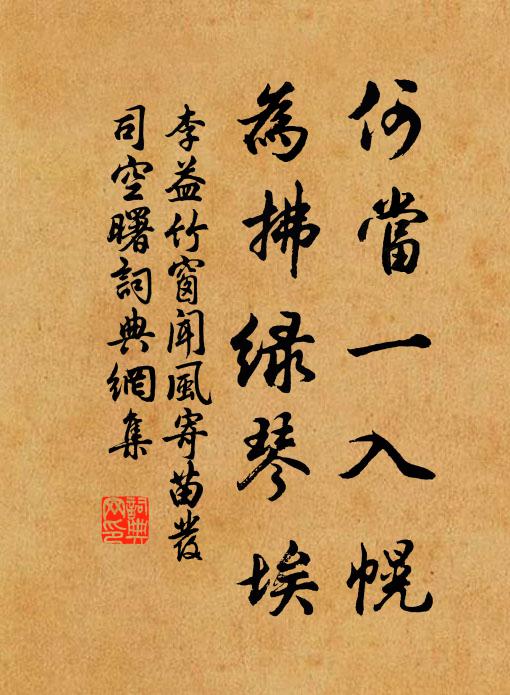 何當一入幌
為拂綠琴埃
李益竹窗聞風寄苗發
司空曙詞典網集
詞典網印